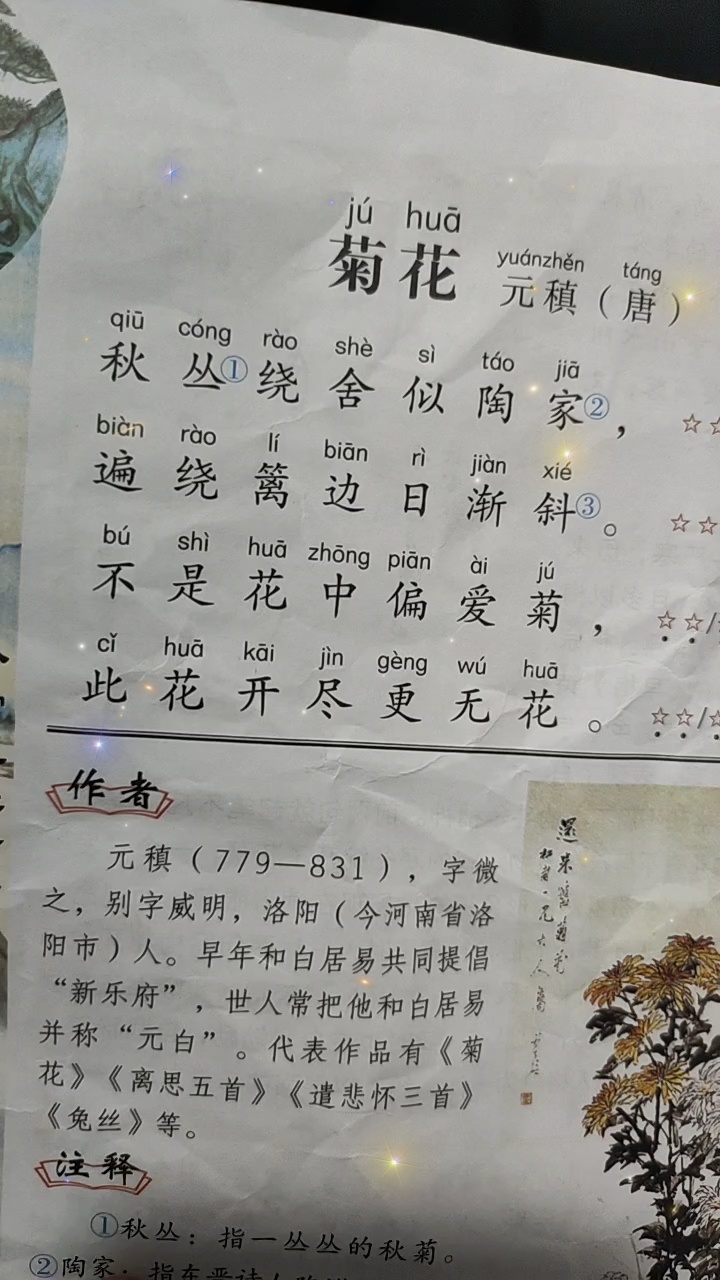 jú huā
菊花
yuánzhěn táng
元稹（唐）
qiū cóng rào shè sì táo jiā
秋丛①绕舍似陶家②，☆☆
biàn rào lí biān rì jiàn xié
遍绕篱边日渐斜③。☆☆
bú shì huā zhōng piān ài jú
不是花中偏爱菊，☆☆/
cǐ huā kāi jìn gèng wú huā
此花开尽更无花。☆☆/☆
作者
元稹（779—831），字微
之，别字威明，洛阳（今河南省洛
阳市）人。早年和白居易共同提倡
“新乐府”，世人常把他和白居易
并称“元白”。代表作品有《菊
花》《离思五首》《遣悲怀三首》
《兔丝》等。
注释
①秋丛：指一丛丛的秋菊。
②陶家：指东晋诗人陶